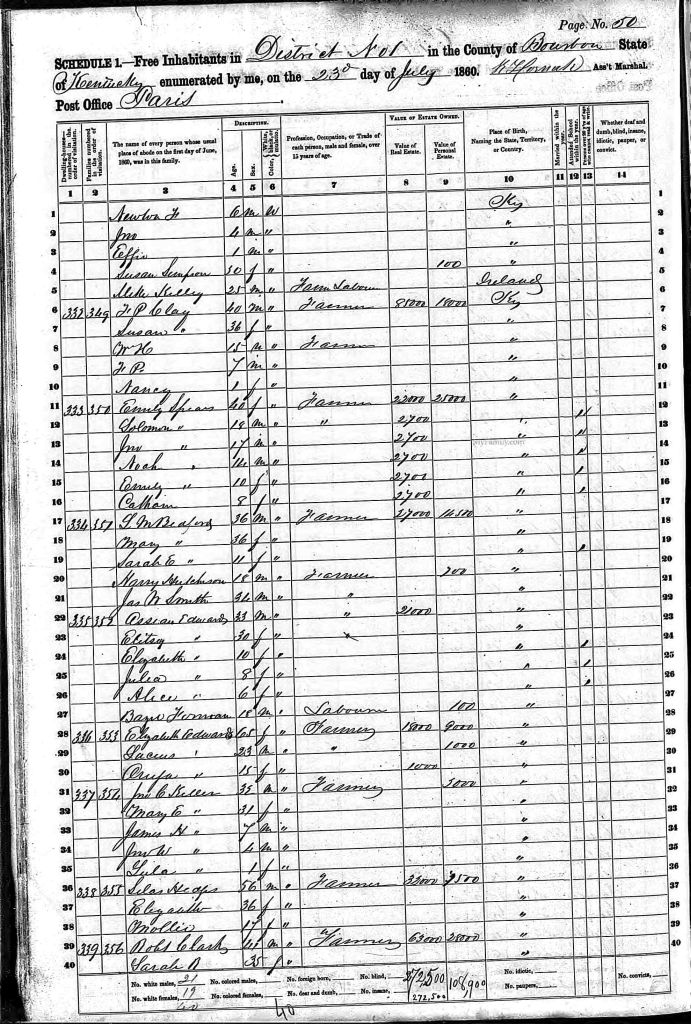 Page. No. 50
SCHEDULE 1.—Free Inhabitants in District No 1 in the County of Bourbon State
of Kentucky enumerated by me, on the 23d day of July 1860. Ass't Marshal.
Post Office Paris
Dwelling-houses—numbered in the order of visitation.
Families numbered in the order of visitation.
The name of every person whose usual place of abode on the first day of June, 1860, was in this family.
DESCRIPTION.
Age.
Sex.
Color, White, black, or mulatto.
Profession, Occupation, or Trade of each person, male and female, over 15 years of age.
VALUE OF ESTATE OWNED.
Value of Real Estate.
Value of Personal Estate.
Place of Birth, Naming the State, Territory, or Country.
Married within the year.
Attended School within the year.
Whether deaf and dumb, blind, insane, idiotic, pauper, or convict.
1 2 3 4 5 6 7 8 9 10 11 12 13 14
1 Newton F 6 m W Ky 1
2 Jno 4 m " " 2
3 Effie 1 m " " 3
4 Susan Simpson 30 f " 100 " 4
5 Mike Kelley 25 m " Farm Labour Ireland 5
6 332 349 F P Clay 40 m " Farmer 85000 18000 Ky 6
7 Susan " 36 f " " 7
8 W H 15 m " Farmer " 8
9 F P. 7 m " " 9
10 Nancy 1 f " " 10
11 333 350 Emily Spears 40 f " Farmer 22000 25000 " 11
12 Solomon " 18 m " " 2700 " 12
13 Jno " 17 m " 2700 " 13
14 Noah " 14 m " 2700 " 14
15 Emily " 10 f " 2700 " 15
16 8 f " 2700 " 16
17 334 351 Bedford 36 m " Farmer 27000 14500 " 17
18 Mary " 36 f " " 18
19 Sarah E " 11 f " " 19
20 Harry Hutchison 18 m " Farmer 200 " 20
21 Jas W Smith 34 m " " " 21
22 335 352 Edwards 33 m " " 21000 " 22
23 " 30 f " " 23
24 Elizabeth " 10 f " " 24
25 Julia " 8 f " " 25
26 Alice " 6 f " " 26
27 18 m " Labourer 100 " 27
28 336 353 Elizabeth Edwards 65 f " Farmer 18000 9000 " 28
29 Lucius " 23 m " " 1000 " 29
30 15 f " 1000 " 30
31 337 354 Jno C Keller 35 m " Farmer 5000 " 31
32 Mary E " 31 f " " 32
33 James H " 7 m " " 33
34 Jno W " 4 m " " 34
35 Lula " 1 f " " 35
36 338 355 Silas 56 m " Farmer 33000 9500 " 36
37 Elizabeth 36 f " " 37
38 Mollie 17 f " " 38
39 339 356 Robt Clark m " Farmer 63000 28000 " 39
40 Sarah B 35 f " " 40
No. white males, 21 No. colored males, No. foreign born, No. blind, 272,500 108,900 No. idiotic, No. convicts,
No. white females, 19 No. colored females, No. deaf and dumb, No. insane, 272,500 No. paupers,
40 40